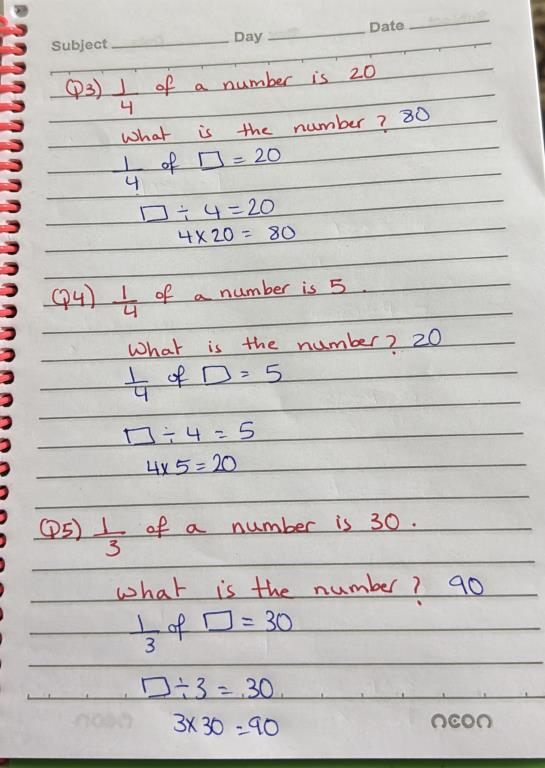 Subject
Day
Date
Q3) 1/4 of a number is 20
What is the number? 80
1/4 of □ = 20
□ ÷ 4 = 20
4 x 20 = 80
Q4) 1/4 of a number is 5.
What is the number? 20
1/4 of □ = 5
□ ÷ 4 = 5
4 x 5 = 20
Q5) 1/3 of a number is 30.
What is the number? 90
1/3 of □ = 30
□ ÷ 3 = 30
3 x 30 = 90
neon